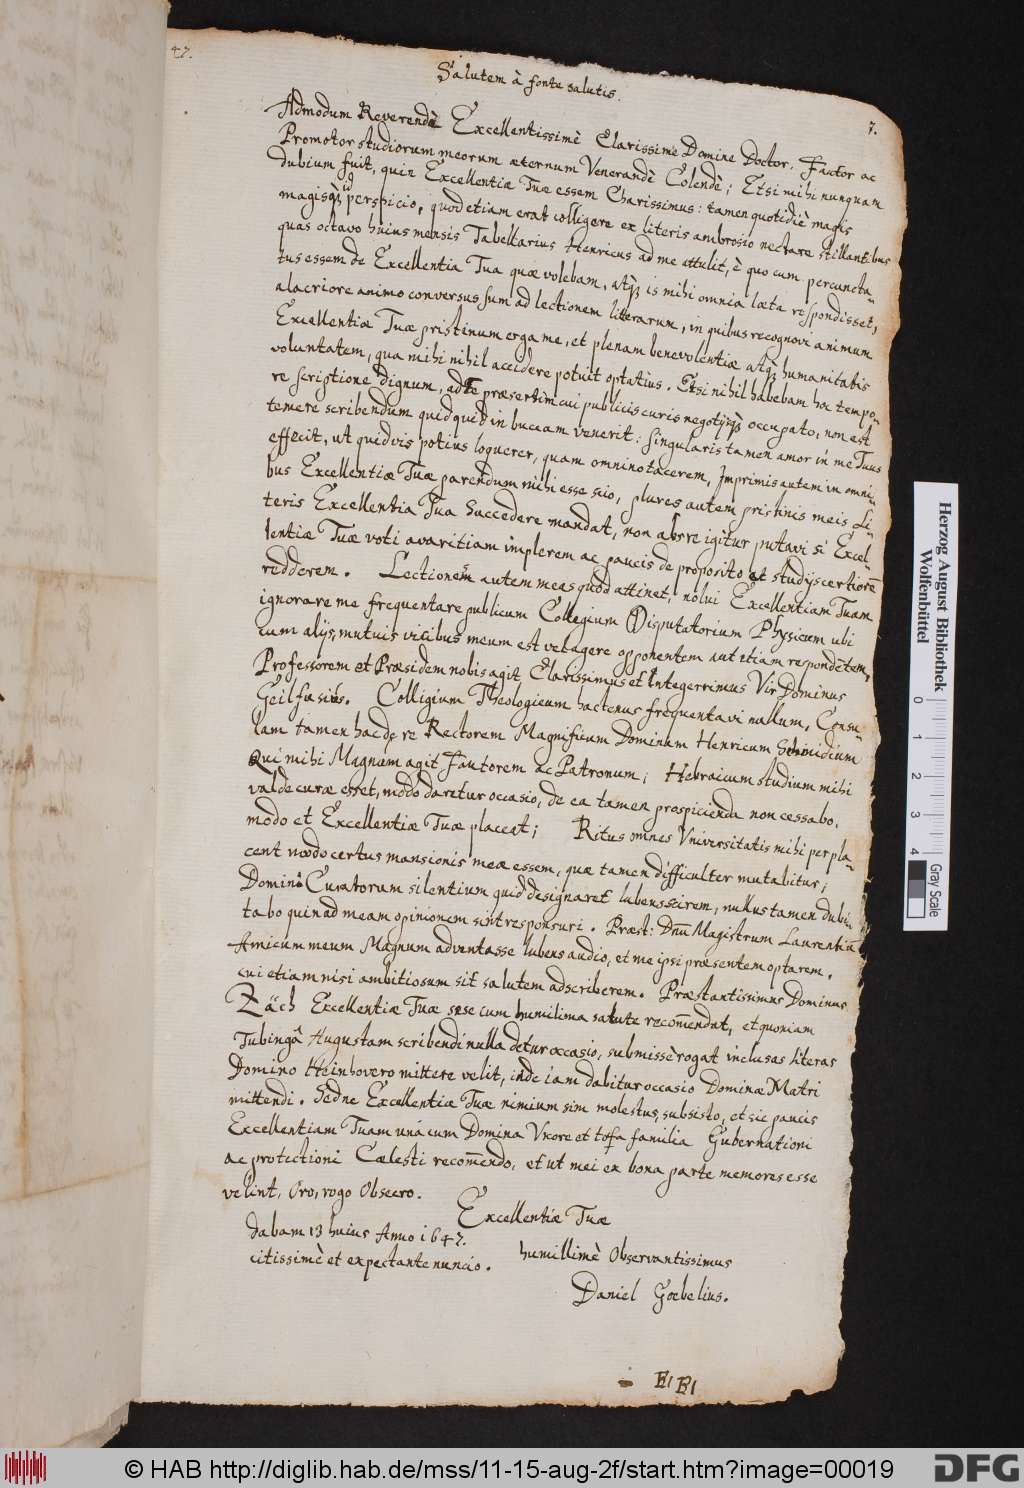 47.
Salutem à fonte salutis.
7.
Admodum Reverendè Excellentissimè Clarissime Domine Doctor. Fautor ac
Promotor studiorum meorum æternum Venerandè Colendè; Etsi mihi nunquam
dubium fuit, quin Excellentiæ Tuæ essem Charissimus: tamen quotidiè magis
magisq; id perspicio, quod etiam erat colligere ex literis ambrosio nectare stillantibus
quas octavo huius mensis Tabellarius Henricus ad me attulit, è quo cum percuncta-
tus essem de Excellentia Tua quæ volebam, atq; is mihi omnia læta respondisset,
alacriore animo conversus sum ad lectionem literarum, in quibus recognovi animum
Excellentiæ Tuæ pristinum erga me, et plenam benevolentiæ atq; humanitatis
voluntatem, qua mihi nihil accidere potuit optatius. Etsi nihil habebam hoc tempo-
re scriptione dignum, ad Te præsertim cui publicis curis negotijsq; occupato, non est
temere scribendum quidquid in buccam venerit: singularis tamen amor in me Tuus
effecit, ut quidvis potius loquerer, quam omnino tacerem, Imprimis autem in omni-
bus Excellentiæ Tuæ parendum mihi esse scio, plures autem pristinis meis Li-
teris Excellentia Tua succedere mandat, non abs re igitur putavi si Excel-
lentiæ Tuæ voti avaritiam implerem ac paucis de proposito et studijs certiorē
redderem. Lectionem autem meas quod attinet, nolui Excellentiam Tuam
ignorare me frequentare publicum Collegium Disputatorium Physicum ubi
cum alijs mutuis vicibus meum est vel agere opponentem aut etiam respondentem,
Professorem et Præsidem nobis agit Clarissimus et Integerrimus Vir Dominus
Geilfusius. Collegium Theologicum hactenus frequentavi nullum, Consu-
lam tamen hac de re Rectorem Magnificum Dominum Henricum Schmidium
Qui mihi Magnum agit Fautorem ac Patronum; Hebraicum studium mihi
valde curæ esset, modo daretur occasio, de ea tamen prospicienda non cessabo,
modo et Excellentiæ Tuæ placeat; Ritus omnes Universitatis mihi perpla-
cent modo certus mansionis meæ essem, quæ tamen difficulter mutabitur;
Dominô Curatorum silentium quid designaret lubens scirem, nullus tamen dubi-
tabo quin ad meam opinionem sint responsuri. Præst: Dnū Magistrum Laurentiū
Amicum meum Magnum adventasse lubens audio, et me ipsi præsentem optarem.
cui etiam nisi ambitiosum sit salutem adscriberem. Præstantissimus Dominus
Zäch Excellentiæ Tuæ sese cum humilima salute recom̄endat, et quoniam
Tubingâ Augustam scribendi nulla detur occasio, submissè rogat inclusas literas
Domino Heinhovero mittere velit, inde iam dabitur occasio Dominæ Matri
mittendi. Sed ne Excellentiæ Tuæ nimium sim molestus, subsisto, et sic paucis
Excellentiam Tuam unà cum Domina Uxore et tota familia Gubernationi
ac protectioni Cælesti recom̄endo, et ut mei ex bona parte memores esse
velint, Oro, rogo Obsecro.
Excellentiæ Tuæ
dabam 13 huius Anno 1647.
citissimè et expectante nuncio.
humillimè Observantissimus
Daniel Goebelius.
Herzog August Bibliothek
Wolfenbüttel
0 1 2 3 4
Gray Scale
© HAB http://diglib.hab.de/mss/11-15-aug-2f/start.htm?image=00019
DFG